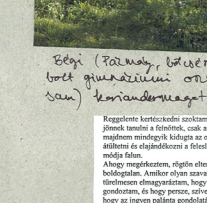 Bégi (Pázmány, bölcsé
volt gimnáziumi
san) koriandermagot
Reggelente kertészkedni szoktam
jönnek tanulni a felnőttek, csak a
majdnem mindegyik kidugta az o
átültetni és elajándékozni a felesl
módja falun.
Ahogy megérkeztem, rögtön elter
boldogtalan. Amikor olyan szava
türelmesen elmagyaráztam, hogy
gondoztam, és hogy persze, szíve
hogy az ingyen palánta gondolatá